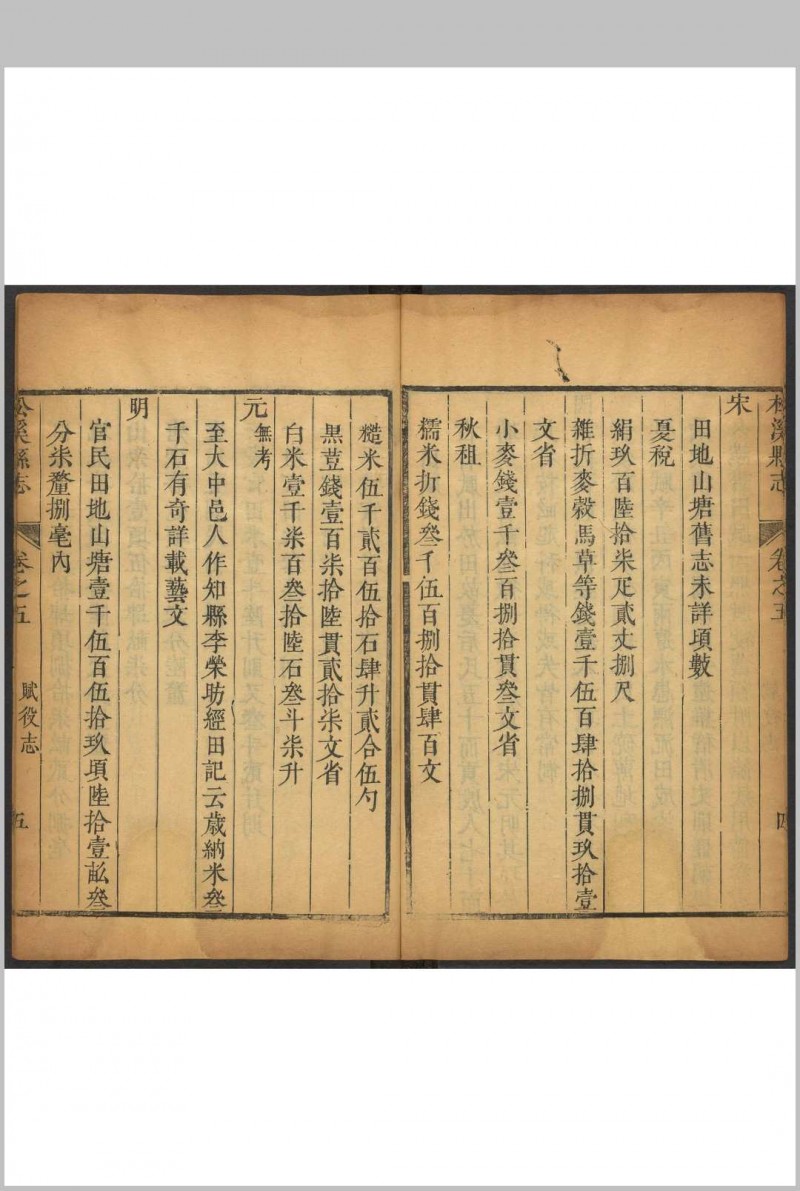 松溪縣志 卷之五 四
宋
田地山塘舊志未詳項數
夏稅
絹玖百陸拾柒疋貳丈捌尺
雜折麥穀馬草等錢壹千伍百肆拾捌貫玖拾壹
文省
小麥錢壹千叄百捌拾貫叄文省
秋租
糯米折錢叄千伍百捌拾貫肆百文
糙米伍千貳百伍拾石肆升貳合伍勺
黑荳錢壹百柒拾陸貫貳拾柒文省
白米壹千柒百叄拾陸石叄斗柒升
元 無考
至大中邑人作知縣李榮昉經田記云歲納米叄
千石有奇詳載藝文
明
官民田地山塘壹千伍百伍拾玖項陸拾壹畝叄
分柒釐捌毫內
松溪縣志 卷之五 賦役志 五